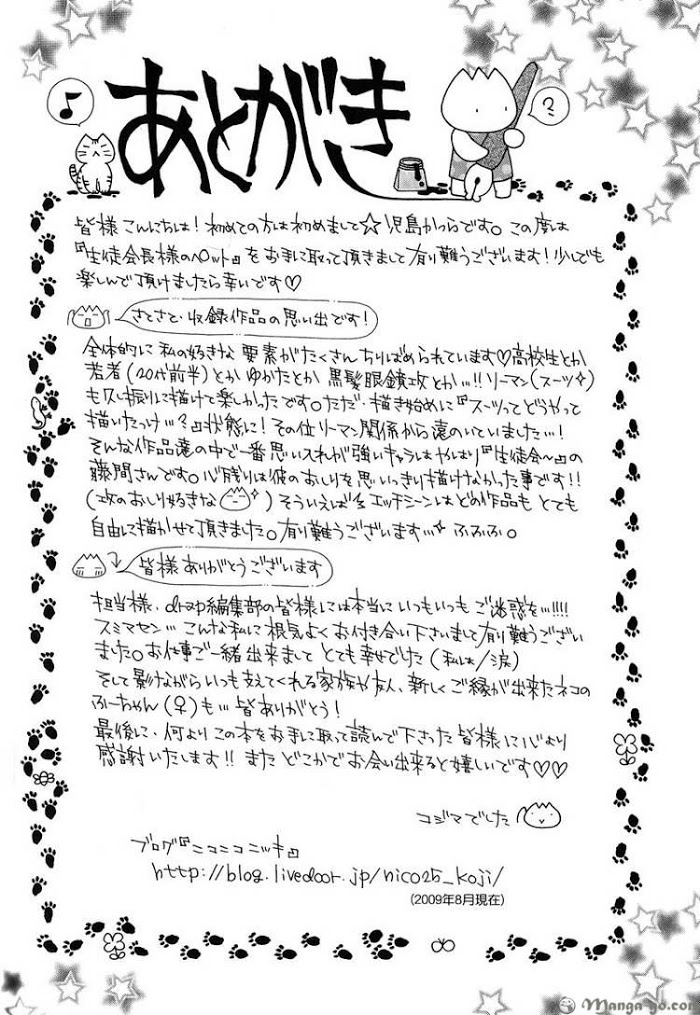 あとがき
♪
?
皆様こんにちは!初めての方は初めまして☆児島かつらです。この度は
『生徒会長様のペット』をお手に取って頂きまして有り難うございます!少しでも
楽しんで頂けましたら幸いです♡
さてさて、収録作品の思い出です!
全体的に私の好きな要素がたくさんちりばめられています♡高校生とか
若者(20代前半)とかゆかたとか黒髪眼鏡攻とか…!!リーマン(スーツ✧)
も久し振りに描けて楽しかったです。ただ、描き始めに『スーツってどうやって
描いたっけ…?』状態に!その位リーマン関係から遠のいていました…!
そんな作品達の中で一番思い入れが強いキャラはやはり『生徒会〜』の
藤間さんです。心残りは彼のおしりを思いっきり描けなかった事です!!
(攻のおしり好きな✧)そういえば、エッチシーンはどの作品もとても
自由に描かせて頂きました。有り難うございます…✧ふふふ。
皆様ありがとうございます
担当様、drap編集部の皆様には本当にいつもいつもご迷惑を…!!!!
スミマセン…こんな私に根気よくお付き合い下さいまして有り難うござい
ました。お仕事ご一緒出来ましてとても幸せでした(私は/涙)
そして影ながらいつも支えてくれる家族や友人、新しくご縁が出来たネコの
ふーちゃん(♀)も…皆ありがとう!
最後に、何よりこの本をお手に取って読んで下さった皆様に心より
感謝いたします!!またどこかでお会い出来ると嬉しいです♡♡
コジマでした
ブログ『ニコニコニッキ』
http://blog.livedoor.jp/nico25_koji/
(2009年8月現在)
Manga-go.com